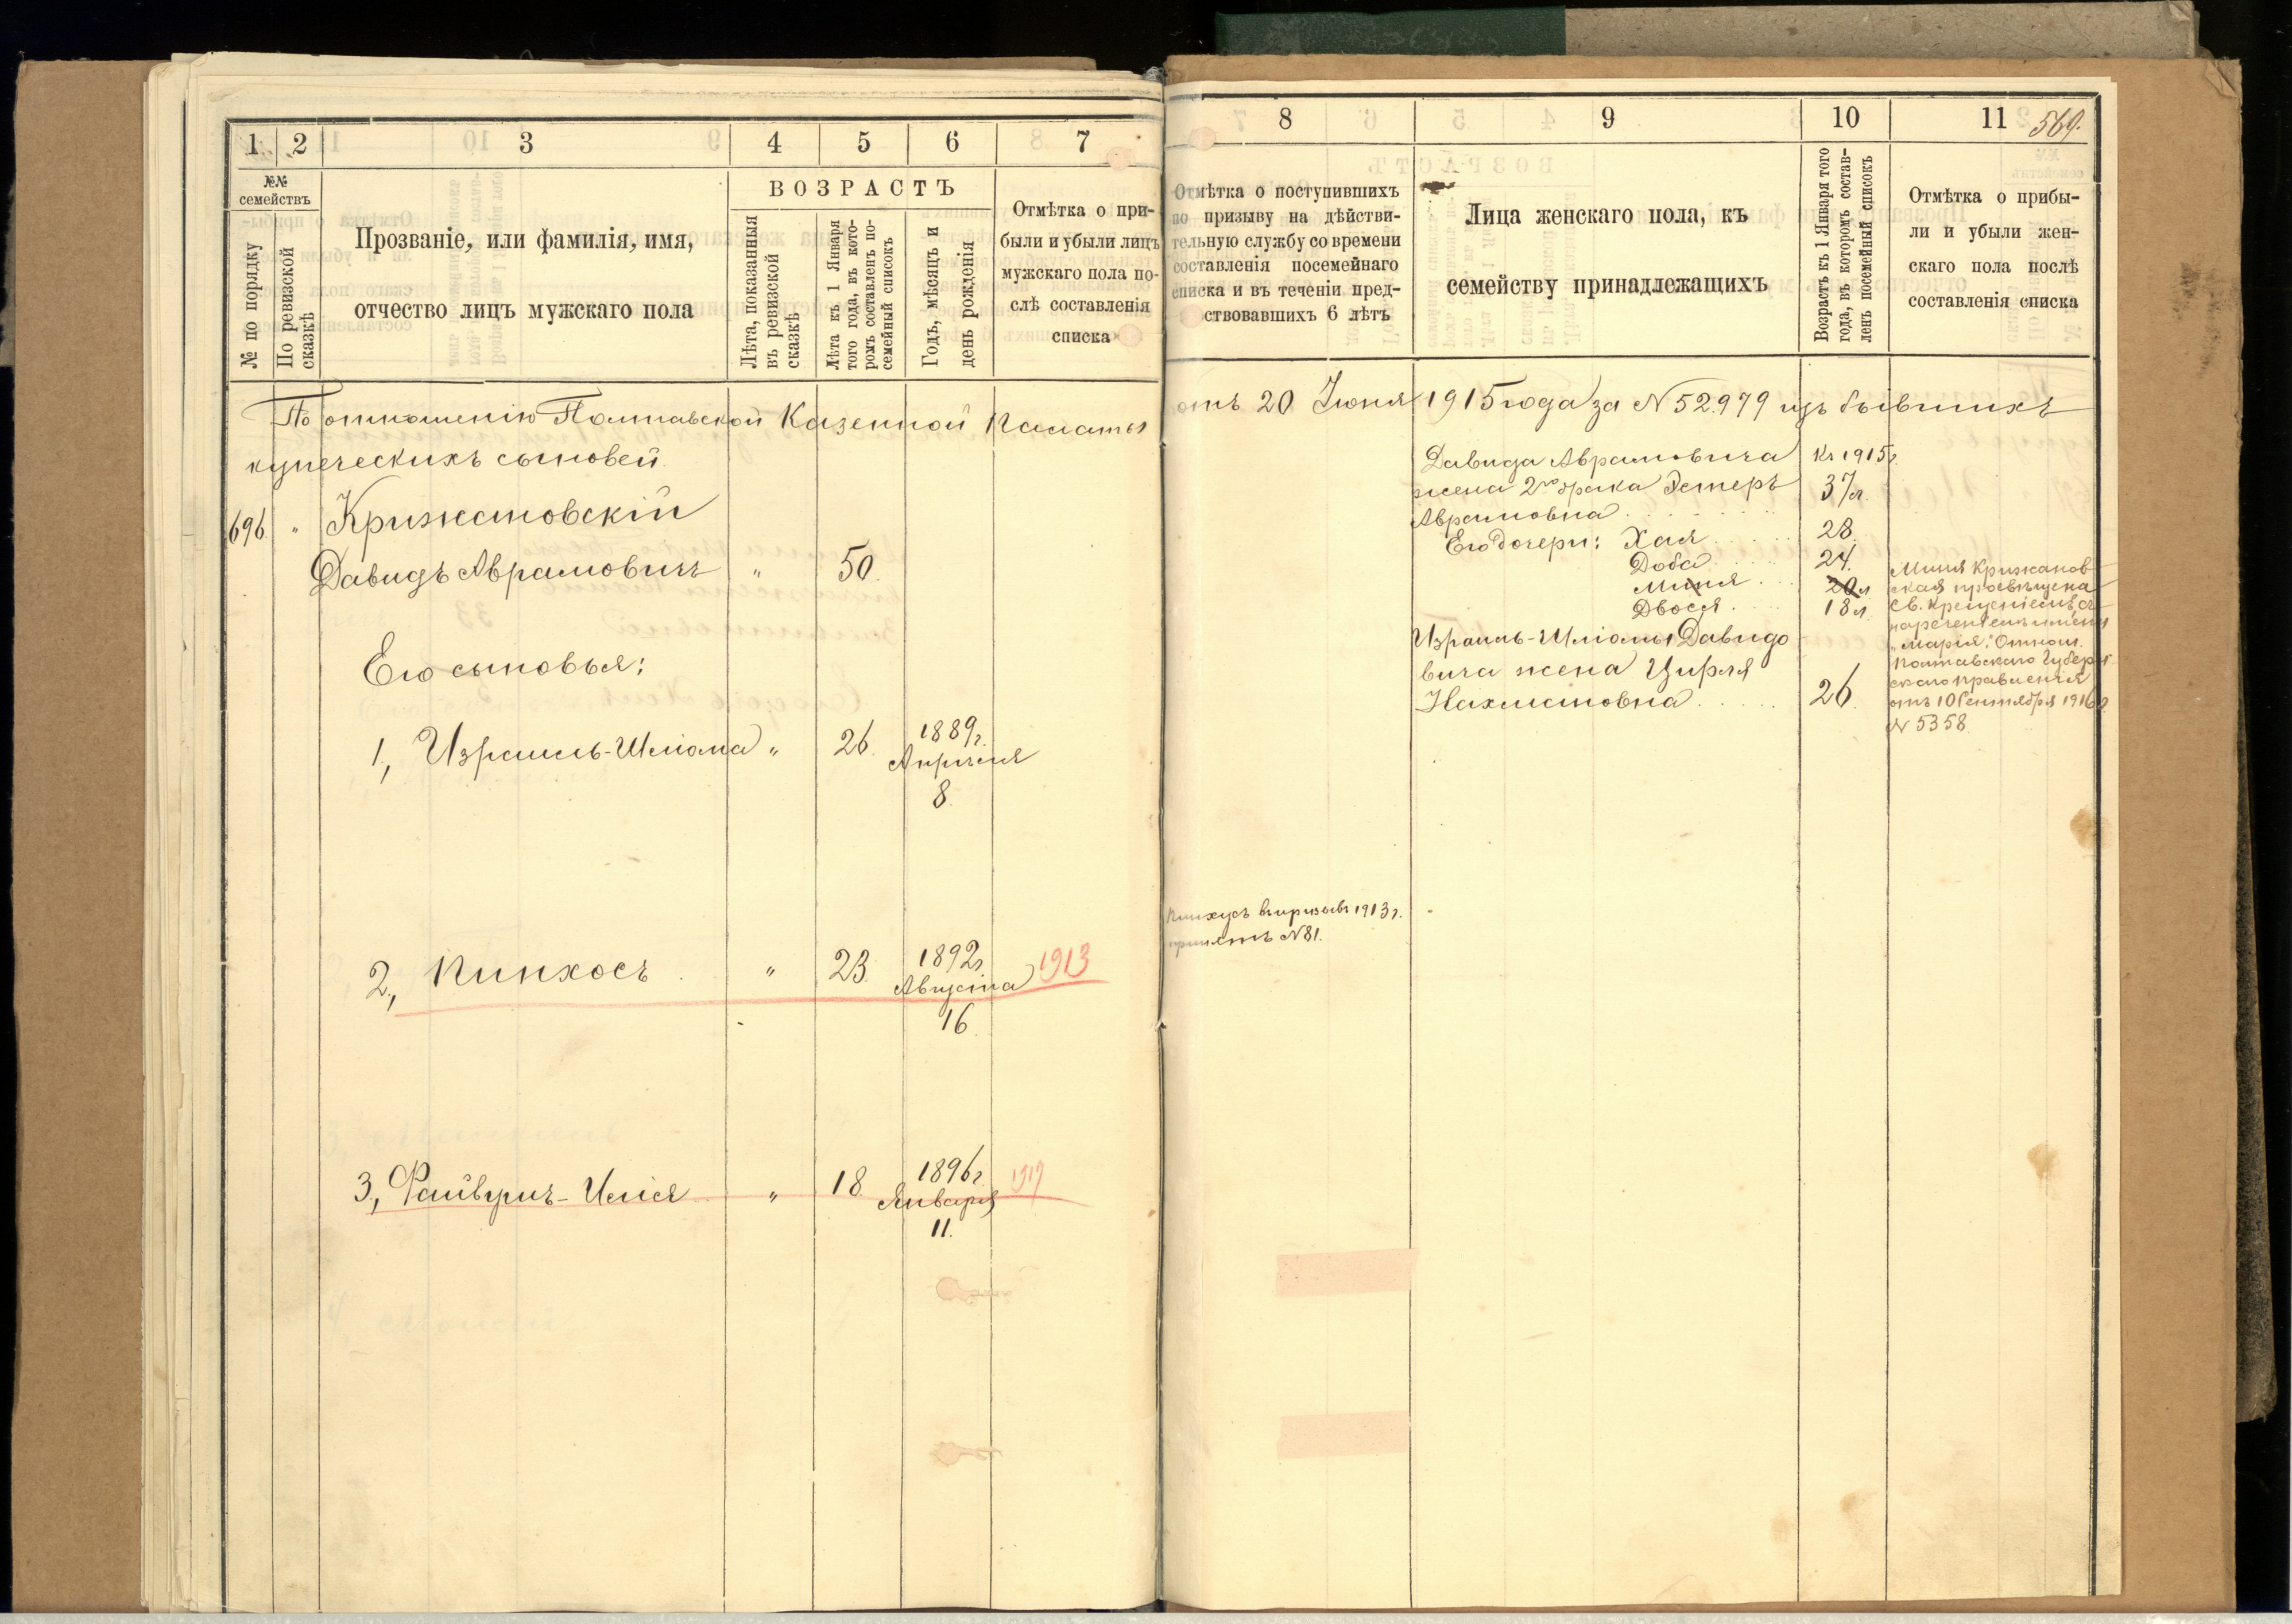 1 2 3 4 5 6 7
№№ семействъ
№ по порядку
По ревизской сказкѣ
Прозваніе, или фамилія, имя,
отчество лицъ мужскаго пола
ВОЗРАСТЪ
Лѣта, показанныя
въ ревизской
сказкѣ
Лѣта къ 1 Января
того года, въ кото-
ромъ составленъ по-
семейный списокъ
Годъ, мѣсяцъ и
день рожденія
Отмѣтка о при-
были и убыли лицъ
мужскаго пола по-
слѣ составленія
списка
8 9 10 11
569.
Отмѣтка о поступившихъ
по призыву на дѣйстви-
тельную службу со времени
составленія посемейнаго
списка и въ теченіи пред-
ствовавшихъ 6 лѣтъ
Лица женскаго пола, къ
семейству принадлежащихъ
Возрастъ къ 1 Января того
года, въ которомъ состав-
ленъ посемейный списокъ
Отмѣтка о прибы-
ли и убыли жен-
скаго пола послѣ
составленія списка
По отношенію Полтавской Казенной Палаты отъ 20 Іюня 1915 года за N 52.979 изъ бывшихъ
купеческихъ сыновей.
696. " Крижановскій
Давидъ Аврамовичъ " 50.
Его сыновья:
1, Израиль-Шліома " 26. 1889г.
Апрѣля
8.
2, Пинхосъ " 23. 1892г. 1913
Августа
16.
3, Файвушъ-Илія " 18. 1896г. 1917
Января
11.
Пинхусъ въ призывъ 1913 г.
принятъ N 81.
Давида Аврамовича Къ 1915г.
жена 2го брака Эстеръ 37л.
Аврамовна
Его дочери: Хая 28.
Доба 24.
Миня 20л
Двося 18л.
Израиль-Шліомы Давидо
вича жена Цирля
Нахмановна 26.
Миня Крижанов
ская просвѣщена
св. крещеніемъ съ
нареченіемъ имени
„Марія". Отнош.
Полтавскаго Губерн-
скаго правленія
отъ 10 Сентября 1916 г.
N 5358.